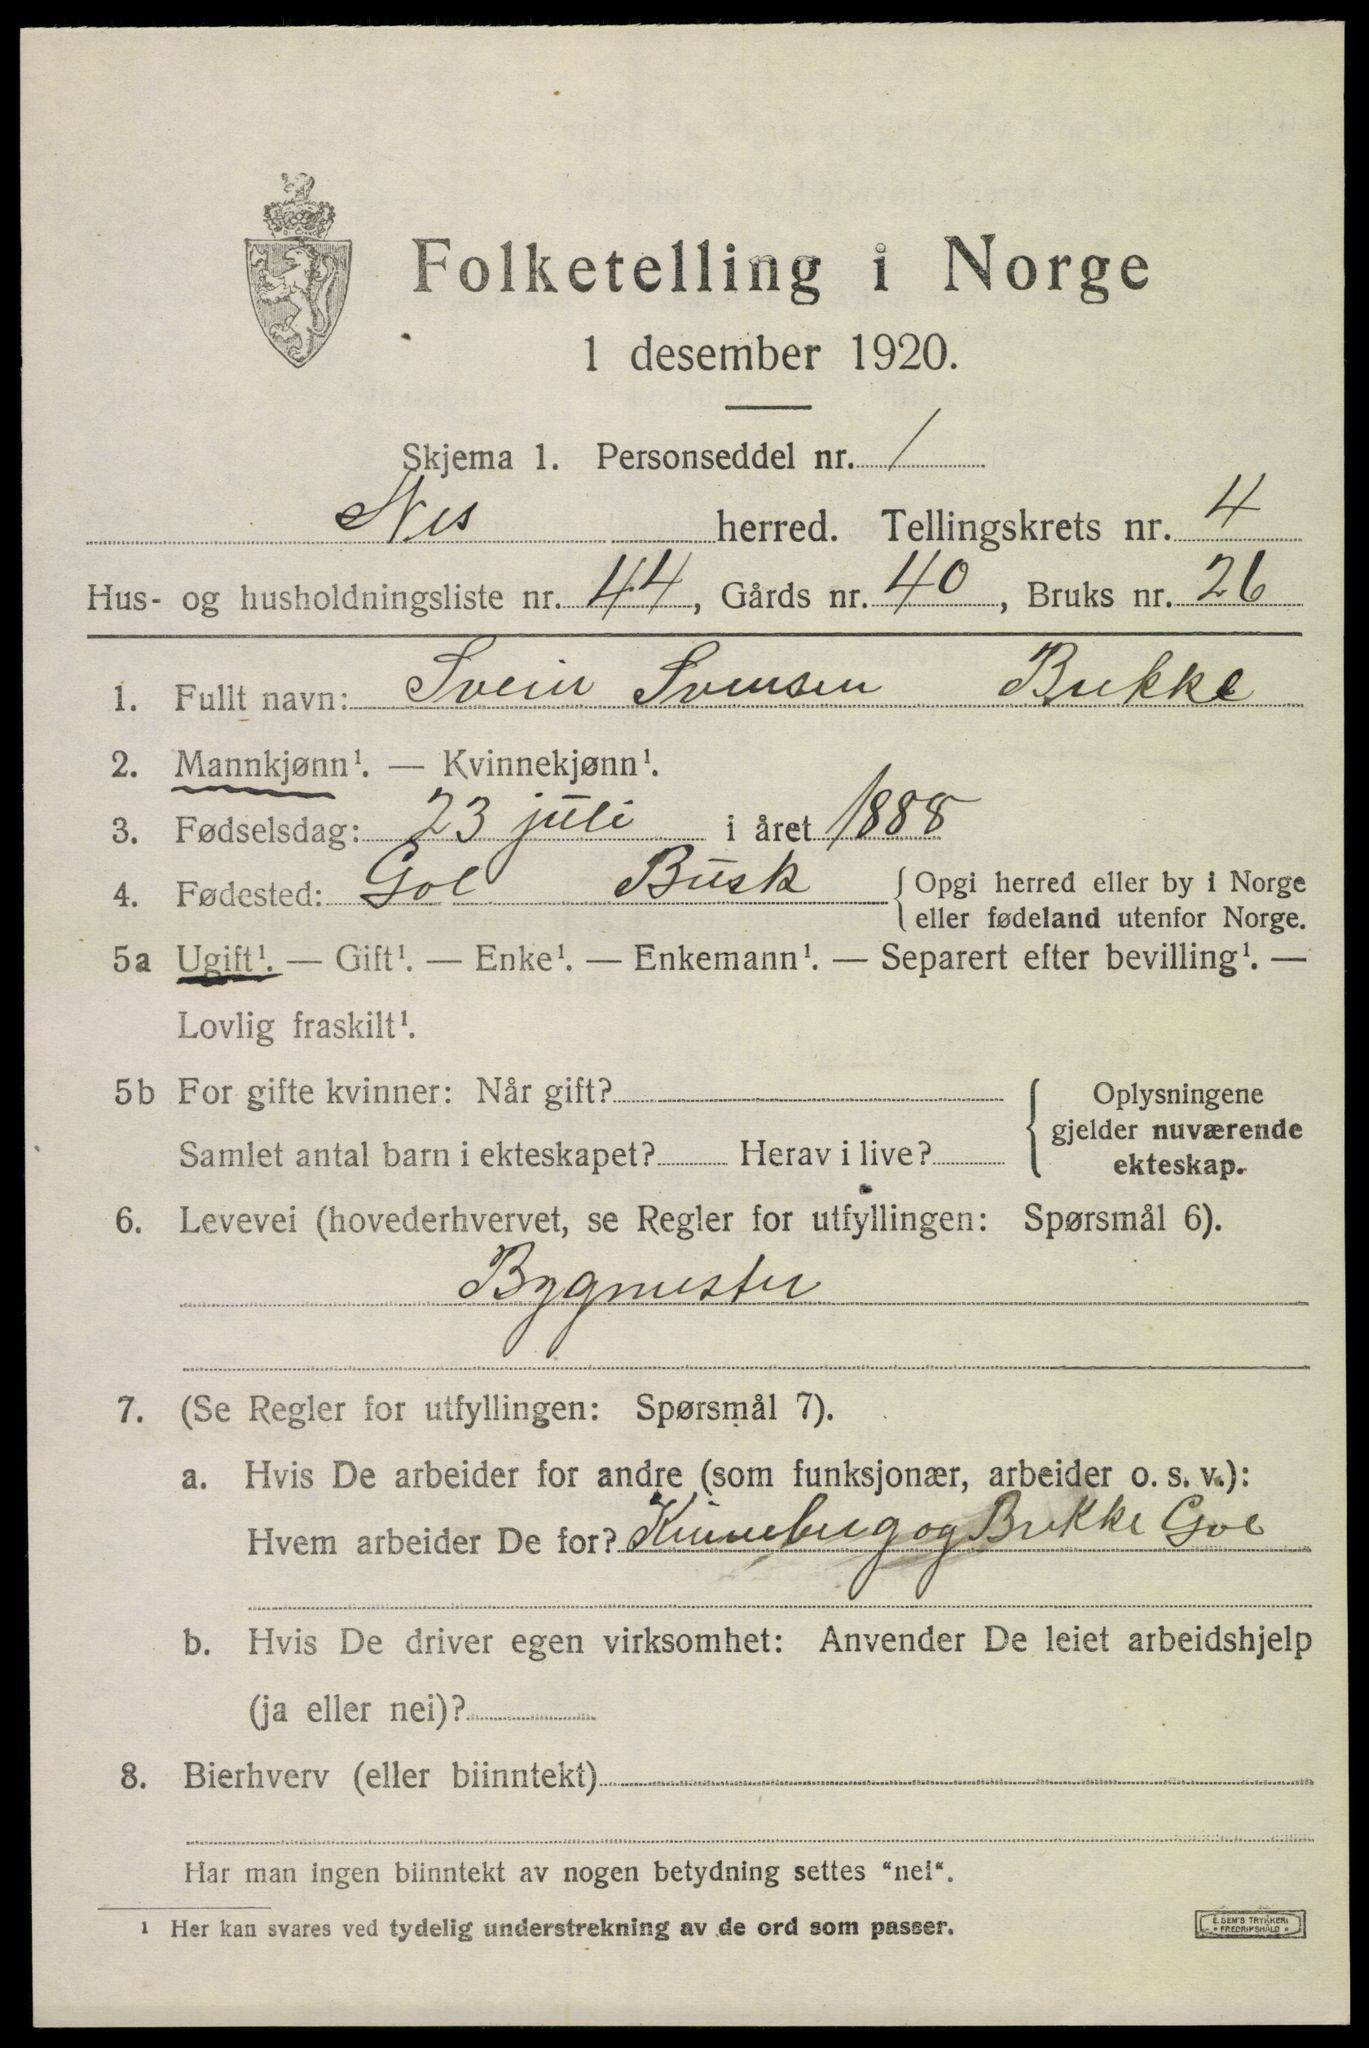 Folketelling i Norge
1 desember 1920.
Skjema 1. Personseddel nr. 1
Nes herred. Tellingskrets nr. 4
Hus- og husholdningsliste nr. 44, Gårds nr. 40, Bruks nr. 26
1. Fullt navn: Svein Svensen Brekke
2. Mannkjønn¹. — Kvinnekjønn¹.
3. Fødselsdag: 23 juli i året 1888
4. Fødested: Gol Busk { Opgi herred eller by i Norge
eller fødeland utenfor Norge.
5a Ugift¹. — Gift¹. — Enke¹. — Enkemann¹. — Separert efter bevilling¹. —
Lovlig fraskilt¹.
5b For gifte kvinner: Når gift?
Samlet antal barn i ekteskapet? Herav i live?
{ Oplysningene
gjelder nuværende
ekteskap.
6. Levevei (hovederhvervet, se Regler for utfyllingen: Spørsmål 6).
Bygmester
7. (Se Regler for utfyllingen: Spørsmål 7).
a. Hvis De arbeider for andre (som funksjonær, arbeider o. s. v.):
Hvem arbeider De for? Kinneberg og Brekke Gol
b. Hvis De driver egen virksomhet: Anvender De leiet arbeidshjelp
(ja eller nei)?
8. Bierhverv (eller biinntekt)
Har man ingen biinntekt av nogen betydning settes "nei".
¹ Her kan svares ved tydelig understrekning av de ord som passer.
E. SEM'S TRYKKERI
* FREDRIKSHALD *